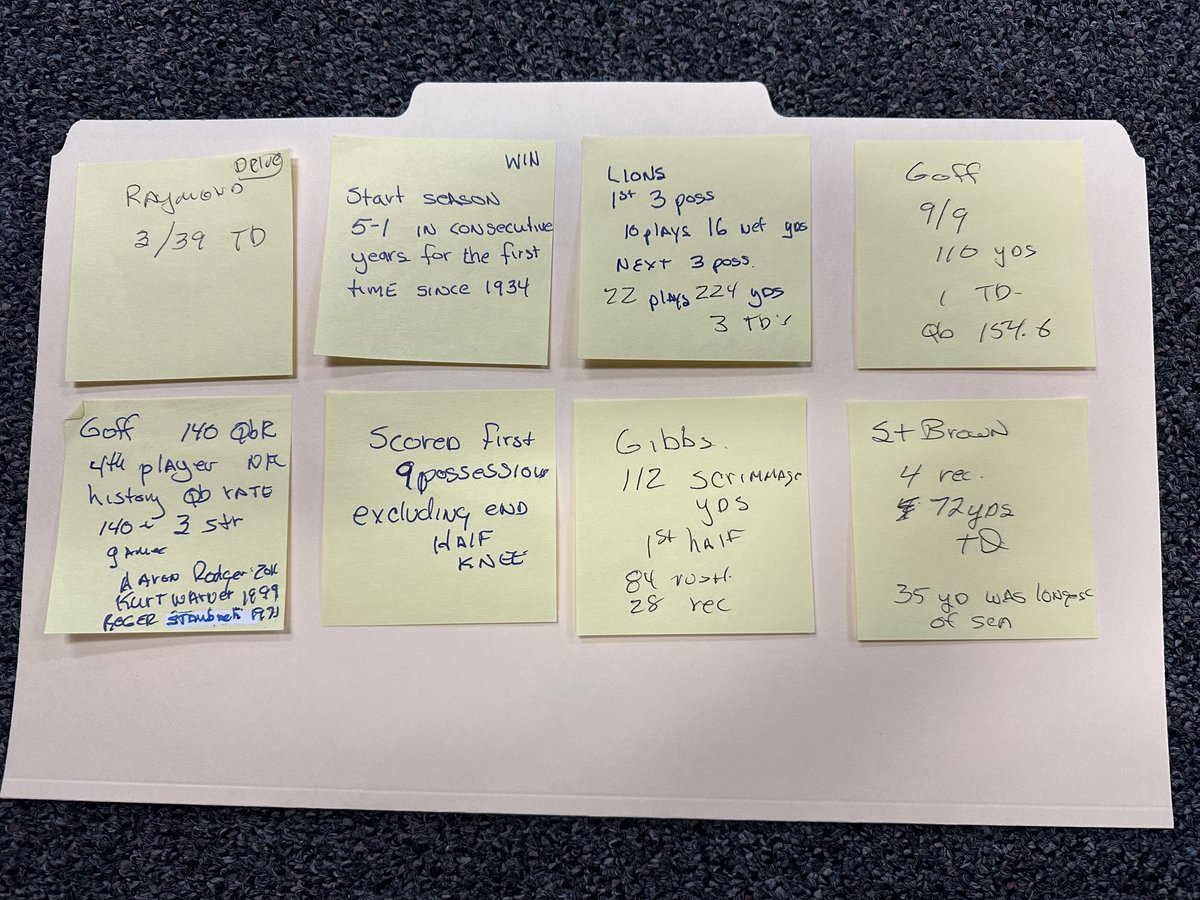 Drive
Raymond
3/39 TD
WIN
Start season
5-1 in consecutive
years for the first
time since 1934
Lions
1st 3 poss
10 plays 16 net yds
Next 3 poss.
22 plays 224 yds
3 TD's
Goff
9/9
110 yds
1 TD-
Qb 154.6
Goff 140 QbR
4th player NFL
history Qb rate
140 in 3 str
games
Aaron Rodger
Kurt Warner 1999
Roger Staubach 1971
Scored first
9 possessions
excluding end
Half
Knee
Gibbs.
112 scrimmage
yds
1st half
84 rush.
28 rec
St Brown
4 rec.
72 yds
TD
35 yd was longest
of sea